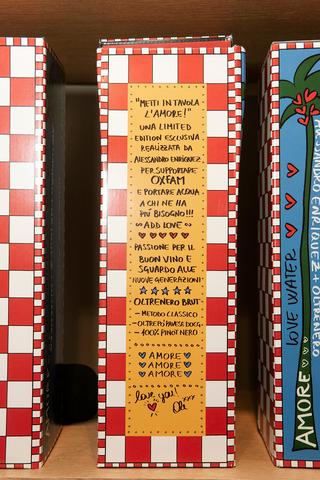 "METTI IN TAVOLA
L'AMORE!"
UNA LIMITED
EDITION ESCLUSIVA
REALIZZATA DA
ALESSANDRO ENRIQUEZ
PER SUPPORTARE
OXFAM
E PORTARE ACQUA
A CHI NE HA
PIÙ BISOGNO!!!
~ADD LOVE~
PASSIONE PER IL
BUON VINO E
SGUARDO ALLE
NUOVE GENERAZIONI
OLTRENERO BRUT
- METODO CLASSICO
- OLTREPÒ PAVESE DOCG -
- 100% PINOT NERO -
AMORE
AMORE
AMORE
love you!
Ale xxx
AMORE LOVE WATER
ALESSANDRO ENRIQUEZ + OLTRENERO